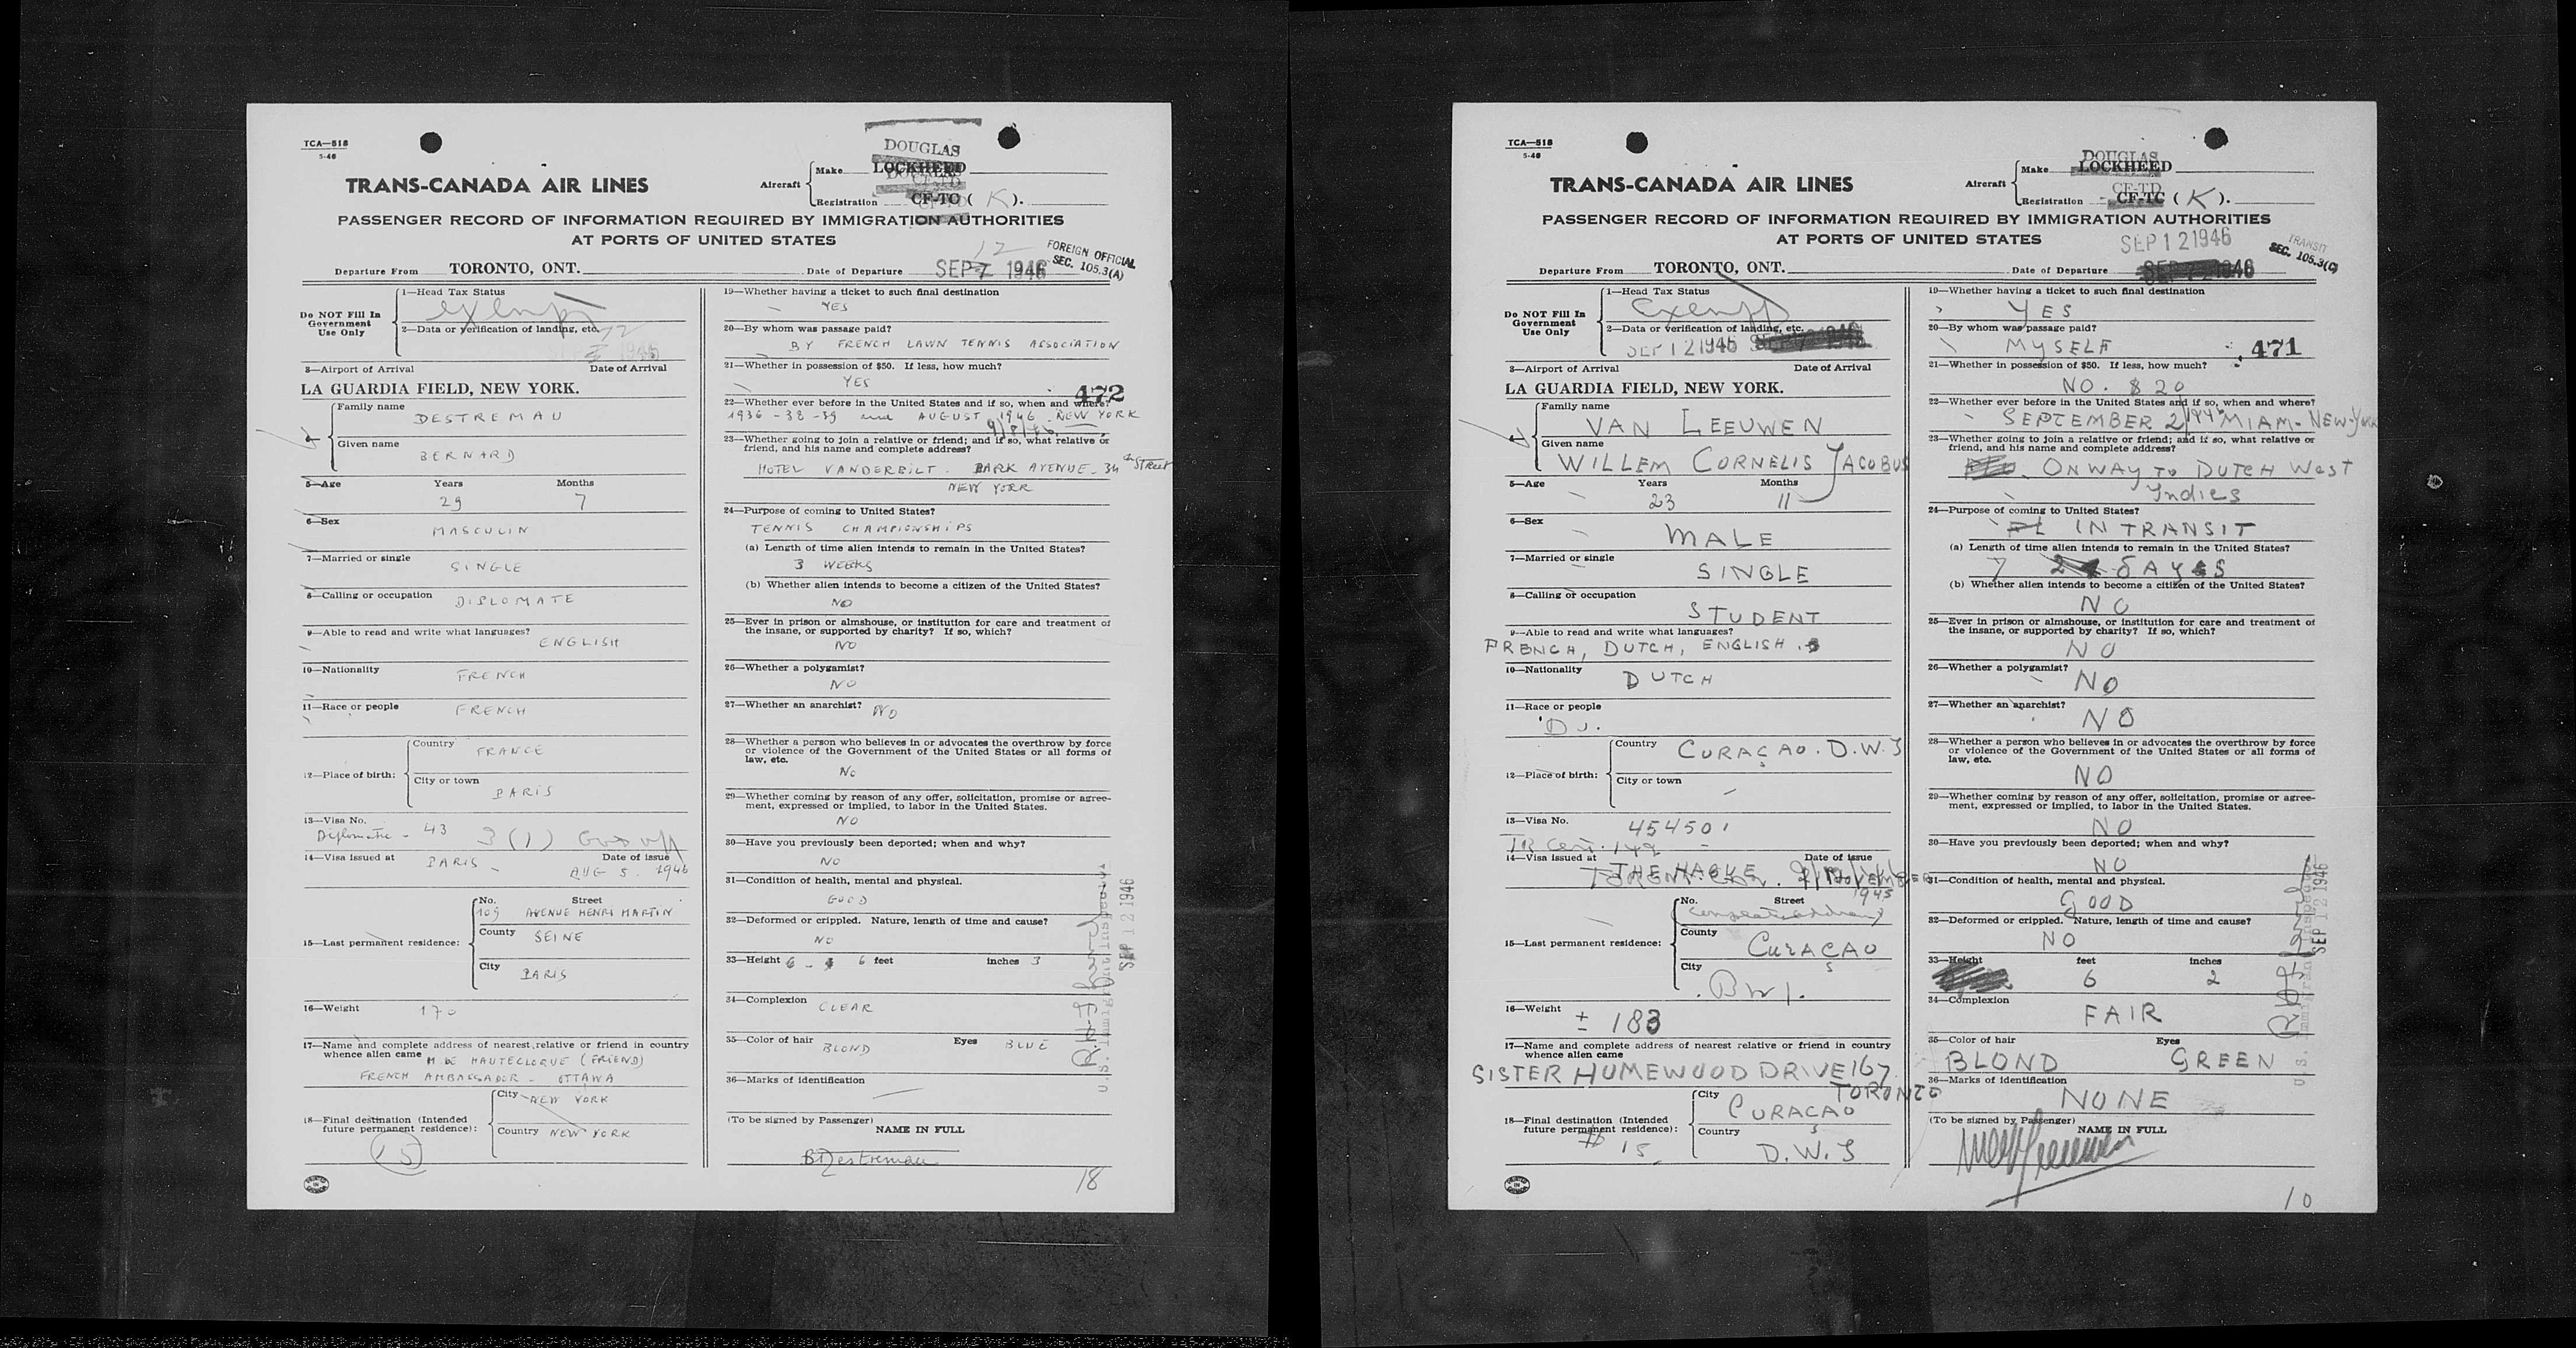 TCA—518
5-46
TRANS-CANADA AIR LINES
Aircraft
Make DOUGLAS
LOCKHEED
Registration CF-TD
CF-TC ( K ).
PASSENGER RECORD OF INFORMATION REQUIRED BY IMMIGRATION AUTHORITIES
AT PORTS OF UNITED STATES
Departure From TORONTO, ONT.
Date of Departure SEP 7 1946
12
FOREIGN OFFICIAL
SEC. 105.3(A)
Do NOT Fill In
Government
Use Only
1—Head Tax Status
Exempt
2—Data or verification of landing, etc.
3—Airport of Arrival Date of Arrival
LA GUARDIA FIELD, NEW YORK.
4
Family name
DESTREMAU
Given name
BERNARD
5—Age Years Months
29 7
6—Sex
MASCULIN
7—Married or single
SINGLE
8—Calling or occupation DIPLOMATE
9—Able to read and write what languages?
ENGLISH
10—Nationality
FRENCH
11—Race or people FRENCH
12—Place of birth:
Country
FRANCE
City or town
PARIS
13—Visa No.
Diplomatic - 43 3 (1)
14—Visa issued at Date of issue
PARIS - AUG 5. 1946
15—Last permanent residence:
No. Street
109 AVENUE HENRI MARTIN
County
SEINE
City
PARIS
16—Weight 170
17—Name and complete address of nearest relative or friend in country
whence alien came M DE HAUTECLOQUE (FRIEND)
FRENCH AMBASSADOR - OTTAWA
18—Final destination (Intended
future permanent residence):
City NEW YORK
Country NEW YORK
15
19—Whether having a ticket to such final destination
YES
20—By whom was passage paid?
BY FRENCH LAWN TENNIS ASSOCIATION
21—Whether in possession of $50. If less, how much?
YES
472
22—Whether ever before in the United States and if so, when and where?
1936 - 38 - 39 and AUGUST 1946 NEW YORK
9/8/46
23—Whether going to join a relative or friend; and if so, what relative or
friend, and his name and complete address?
HOTEL VANDERBILT. PARK AVENUE - 34th STREET
NEW YORK
24—Purpose of coming to United States?
TENNIS CHAMPIONSHIPS
(a) Length of time alien intends to remain in the United States?
3 WEEKS
(b) Whether alien intends to become a citizen of the United States?
NO
25—Ever in prison or almshouse, or institution for care and treatment of
the insane, or supported by charity? If so, which?
NO
26—Whether a polygamist?
NO
27—Whether an anarchist? NO
28—Whether a person who believes in or advocates the overthrow by force
or violence of the Government of the United States or all forms of
law, etc.
NO
29—Whether coming by reason of any offer, solicitation, promise or agree-
ment, expressed or implied, to labor in the United States.
NO
30—Have you previously been deported; when and why?
NO
31—Condition of health, mental and physical.
GOOD
32—Deformed or crippled. Nature, length of time and cause?
NO
33—Height 6 feet inches 3
34—Complexion
CLEAR
35—Color of hair BLOND Eyes BLUE
36—Marks of identification
(To be signed by Passenger)
NAME IN FULL
B Destremau
18
U.S. Immigrant Inspector
SEP 12 1946
TCA—518
5-46
TRANS-CANADA AIR LINES
Aircraft
Make DOUGLAS
LOCKHEED
Registration CF-TD
CF-TC ( K ).
PASSENGER RECORD OF INFORMATION REQUIRED BY IMMIGRATION AUTHORITIES
AT PORTS OF UNITED STATES
SEP 12 1946
TRANSIT
SEC. 105.3(C)
Departure From TORONTO, ONT.
Date of Departure
Do NOT Fill In
Government
Use Only
1—Head Tax Status
Exempt
2—Data or verification of landing, etc.
SEP 12 1946
3—Airport of Arrival Date of Arrival
LA GUARDIA FIELD, NEW YORK.
4
Family name
VAN LEEUWEN
Given name
WILLEM CORNELIS JACOBUS
5—Age Years Months
23 11
6—Sex
MALE
7—Married or single
SINGLE
8—Calling or occupation
STUDENT
9—Able to read and write what languages?
FRENCH, DUTCH, ENGLISH.
10—Nationality
DUTCH
11—Race or people
12—Place of birth:
Country
CURAÇAO. D.W.I
City or town
13—Visa No.
454501
TR Cert. 142
14—Visa issued at Date of issue
THE HAGUE NOVEMBER
1945
15—Last permanent residence:
No. Street
County
CURAÇAO
City
BWI.
16—Weight
± 183
17—Name and complete address of nearest relative or friend in country
whence alien came
SISTER HUMEWOOD DRIVE 167
TORONTO
18—Final destination (Intended
future permanent residence):
City
CURAÇAO
Country
D.W.I
15
19—Whether having a ticket to such final destination
YES
20—By whom was passage paid?
MYSELF
471
21—Whether in possession of $50. If less, how much?
NO. $ 20
22—Whether ever before in the United States and if so, when and where?
SEPTEMBER 2/1946 MIAMI-NEW-YORK
23—Whether going to join a relative or friend; and if so, what relative or
friend, and his name and complete address?
ON WAY TO DUTCH WEST
Indies
24—Purpose of coming to United States?
IN TRANSIT
(a) Length of time alien intends to remain in the United States?
7 DAYS
(b) Whether alien intends to become a citizen of the United States?
NO
25—Ever in prison or almshouse, or institution for care and treatment of
the insane, or supported by charity? If so, which?
NO
26—Whether a polygamist?
NO
27—Whether an anarchist?
NO
28—Whether a person who believes in or advocates the overthrow by force
or violence of the Government of the United States or all forms of
law, etc.
NO
29—Whether coming by reason of any offer, solicitation, promise or agree-
ment, expressed or implied, to labor in the United States.
NO
30—Have you previously been deported; when and why?
NO
31—Condition of health, mental and physical.
GOOD
32—Deformed or crippled. Nature, length of time and cause?
NO
33—Height feet inches
6 2
34—Complexion
FAIR
35—Color of hair Eyes
BLOND GREEN
36—Marks of identification
NONE
(To be signed by Passenger)
NAME IN FULL
10
U.S. Immigrant Inspector
SEP 12 1946